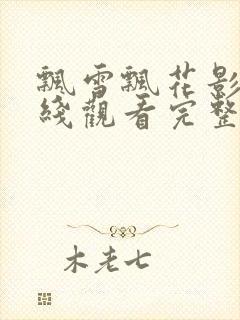 飄雪飄花影
綫觀看完整
木老七